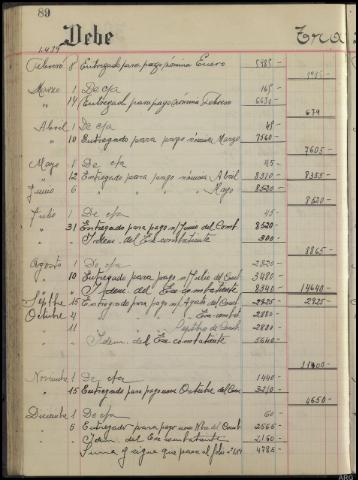 89
Debe Tra
1.479
Febrero 8 Entregado para pago nómina Enero 5985 —
Marzo 1 De cta 165 —
" 14 Entregado para pago nómina Febrero 6630 —
679
Abril 1 De cta 45 —
" 10 Entregado para pago nómina Marzo 7560 —
7605 —
Mayo 1 De cta 45 —
" 12 Entregado para pago nómina Abril 8310 — 8355 —
Junio 6 " " " " Mayo 8520 —
8520 —
Julio 1 De cta 45 —
" 31 Entregado para pago n/ Junio del Comb 8520 —
" Idem. del Ex-combatiente 300 —
8865 —
Agosto 1 De cta 2820 —
" 10 Entregado para pago n/ Julio del Comb 3480 —
" " Idem. del Ex combatiente 8340 — 14640 —
Septbre 15 Entregado para pago n/ Agosto del Comb 2825 — 2825 —
Octubre 4 " " Ex-combat 2880 —
" 11 " Septbre de Comb 2820 —
" Idem del Ex combatiente 5640 —
11400 —
Noviembre 1 De cta 1440 —
" 15 Entregado para pago nom Octubre del Com 3210 —
4650 —
Diciembre 1 De cta 60 —
" 6 Entregado para pago nom Nbre del Comb 2565 —
" Idem del Ex combatiente 2160 —
Suma y sigue que pasa al folio 4785 —